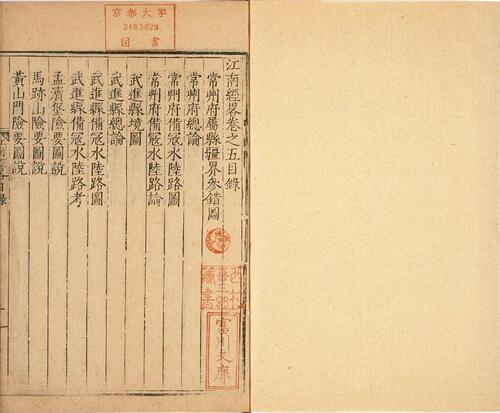 京都大学
2683628
図書
江南經畧卷之五目錄
常州府屬縣疆界參錯圖
常州府總論
常州府備寇水陸路圖
常州府備寇水陸路論
武進縣境圖
武進縣總論
武進縣備寇水陸路圖
武進縣備寇水陸路考
孟瀆堡險要圖說
馬跡山險要圖說
黃山門險要圖說
富川文庫